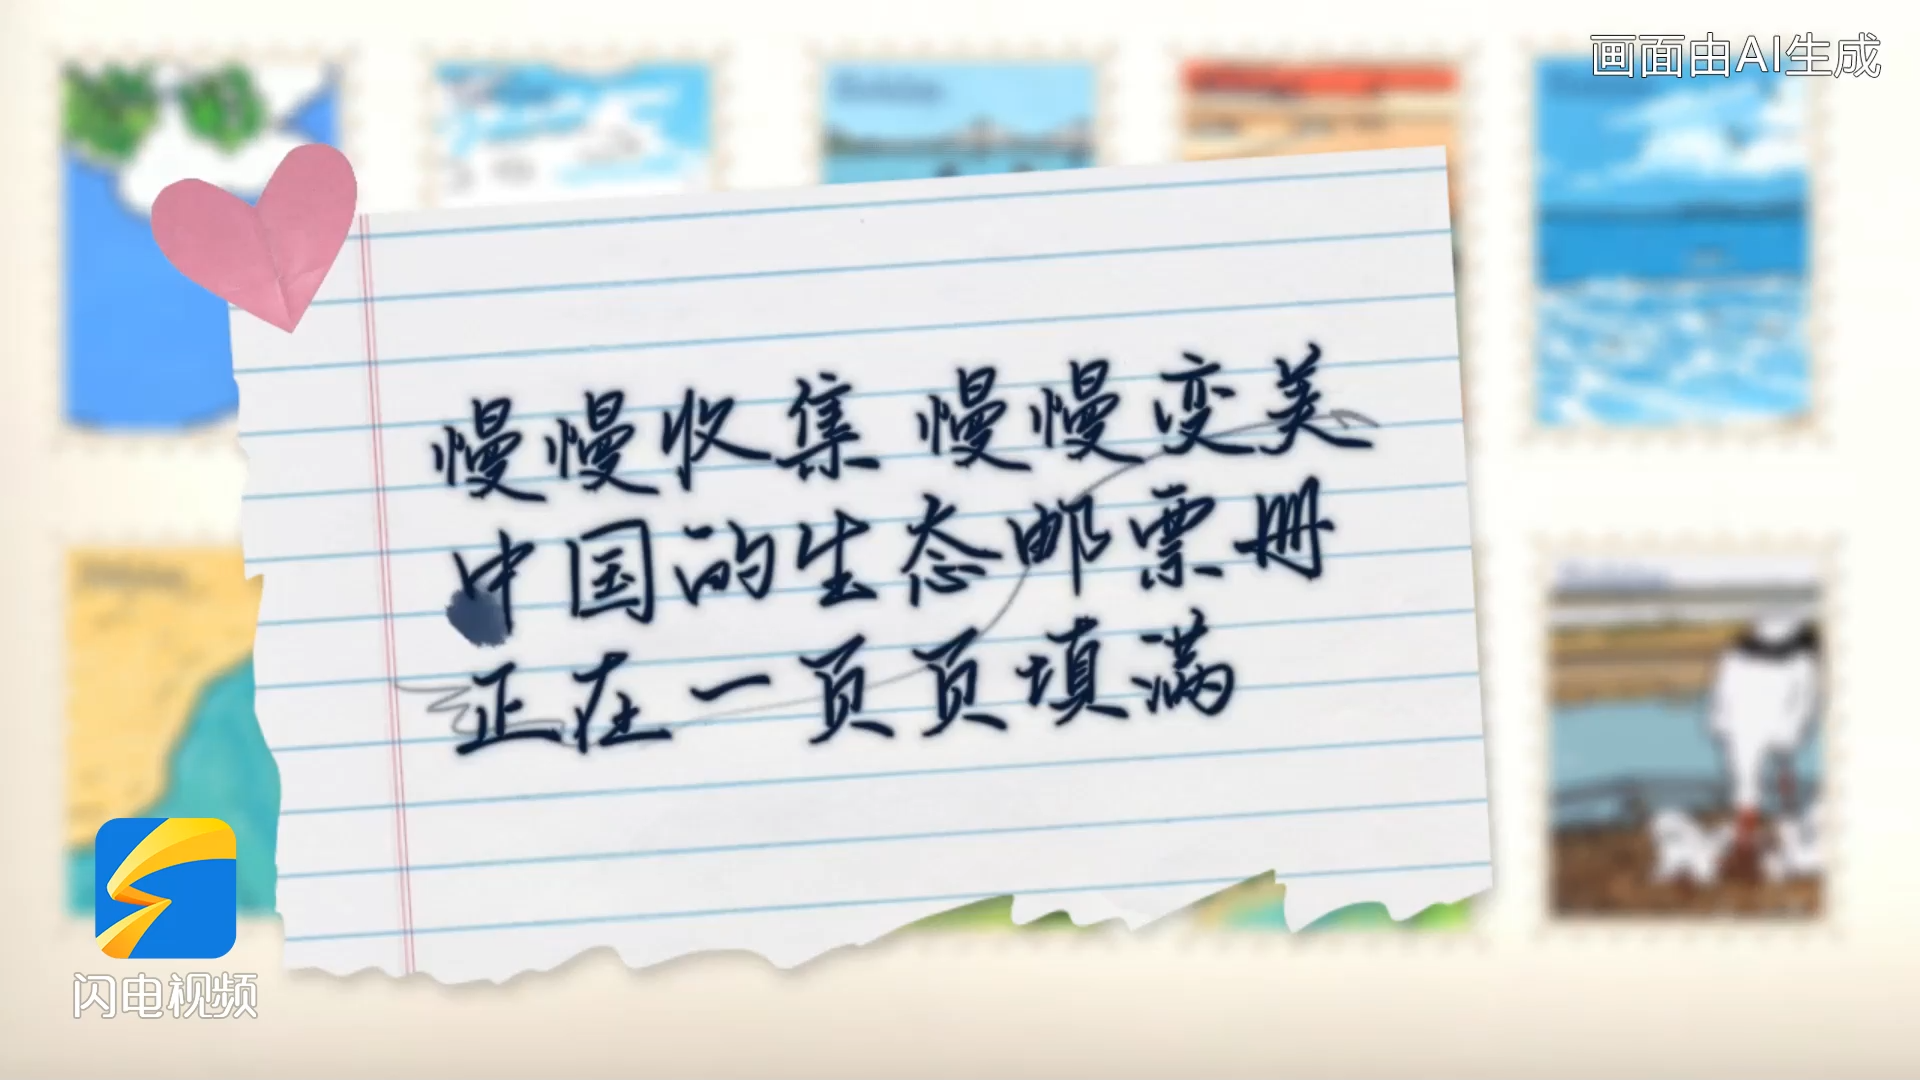 画面由AI生成
慢慢收集 慢慢变美
中国的生态邮票册
正在一页页填满
闪电视频